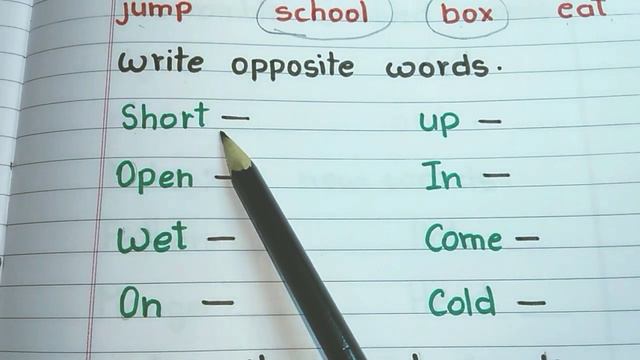 jump school box eat
write opposite words.
Short — up —
Open — In —
Wet — Come —
On — Cold —